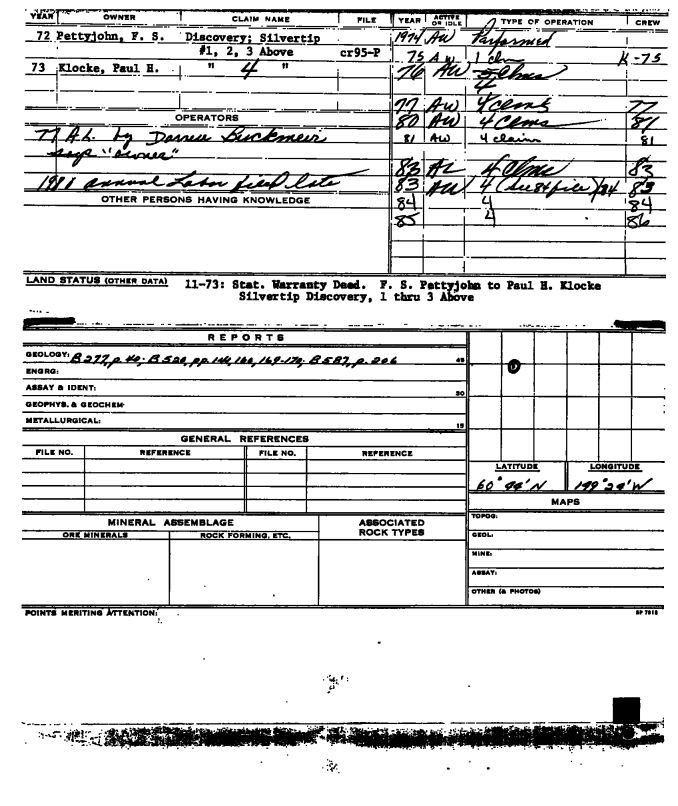 YEAR OWNER CLAIM NAME FILE YEAR ACTIVE OR IDLE TYPE OF OPERATION CREW
72 Pettyjohn, F. S. Discovery; Silvertip 1974 AW Performed
#1, 2, 3 Above cr95-P 75 AW 1 clm K-75
73 Klocke, Paul H. " 4 " 76 AW 5 Clms
4
77 AW 4 clms 77
OPERATORS 80 AW 4 Clms 81
77 A.L. by 81 AW 4 claim 81
says "owner"
83 AL 4 Clms 83
1981 annual Labor filed late 83 AW 4 (See 84 file) 84 83
OTHER PERSONS HAVING KNOWLEDGE 84 4 84
85 4 86
LAND STATUS (OTHER DATA) 11-73: Stat. Warranty Deed. F. S. Pettyjohn to Paul H. Klocke
Silvertip Discovery, 1 thru 3 Above
REPORTS
GEOLOGY: B 277, p. 40; B 520, pp. 146, 160, 169-170; B 587, p. 206 45
ENGRG:
ASSAY & IDENT: 30
GEOPHYS. & GEOCHEM:
METALLURGICAL: 15
GENERAL REFERENCES
FILE NO. REFERENCE FILE NO. REFERENCE
LATITUDE LONGITUDE
60° 44' N 149° 24' W
MAPS
MINERAL ASSEMBLAGE ASSOCIATED ROCK TYPES
ORE MINERALS ROCK FORMING, ETC.
TOPOG:
GEOL:
MINE:
ASSAY:
OTHER (& PHOTOS)
POINTS MERITING ATTENTION: